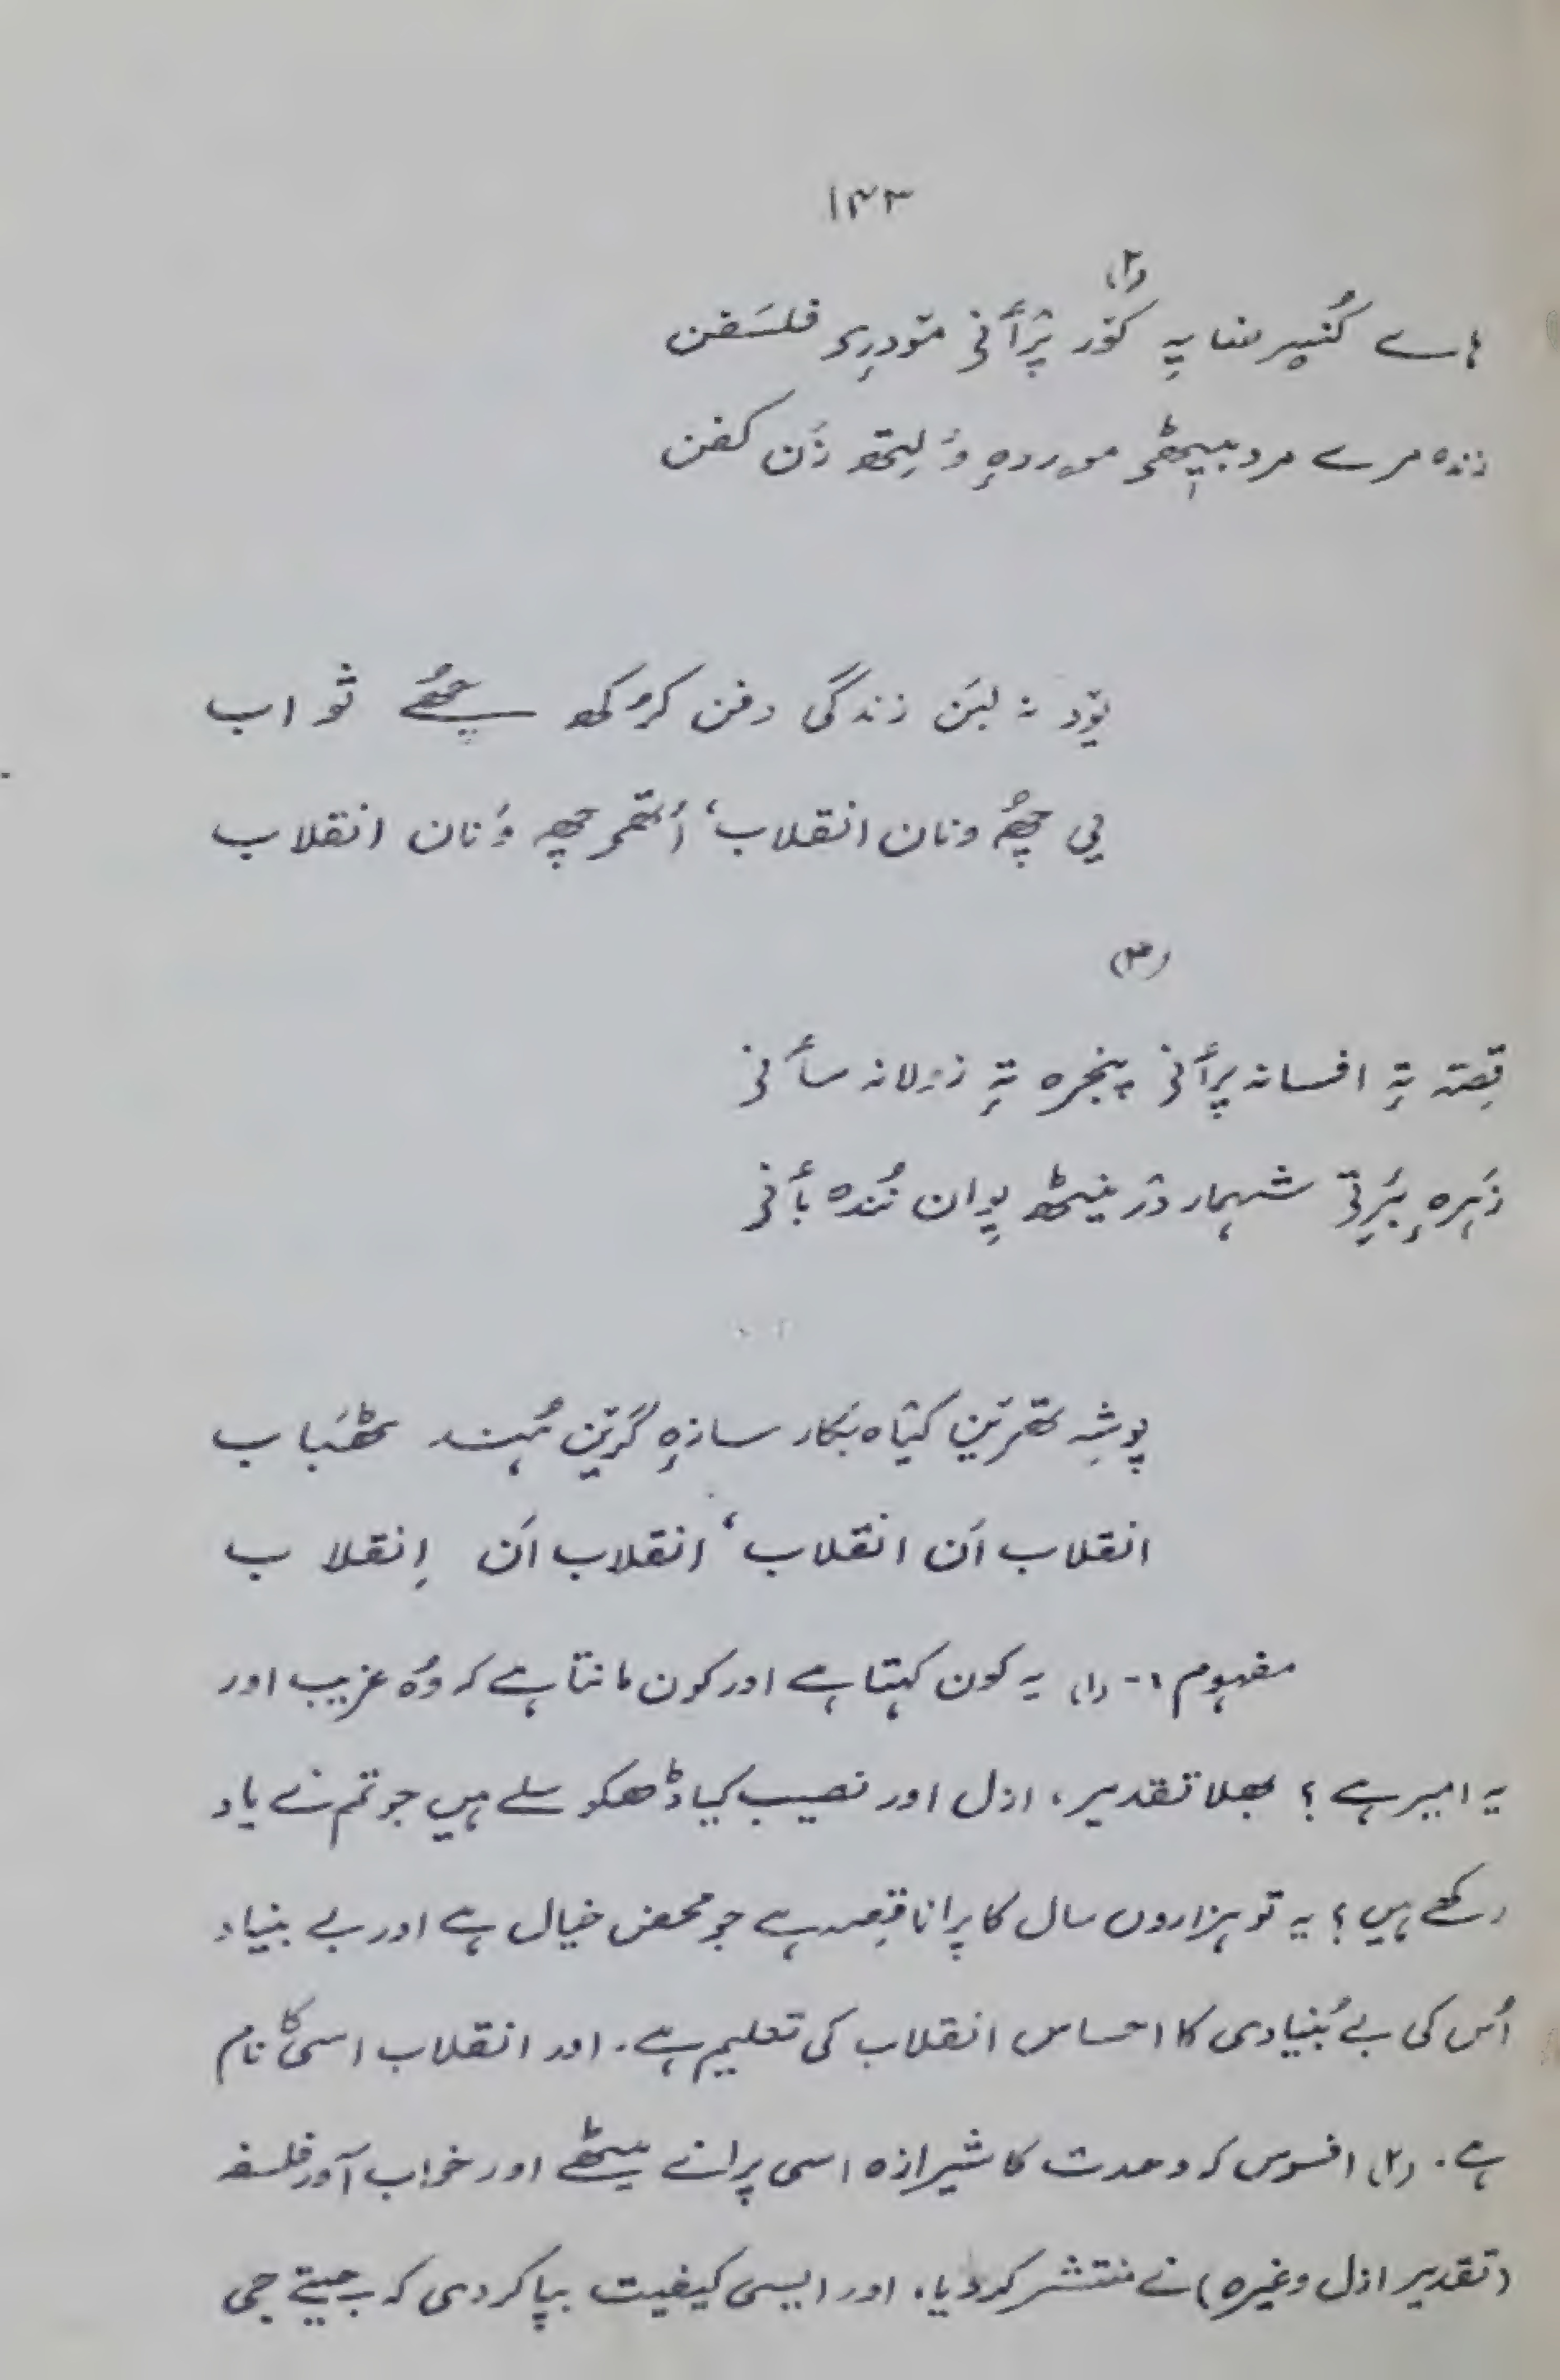 ۱۴۳
(۲)
ہاے کُنِیر ضایہِ کوٚر پرٛأنۍ مۆدرِو فلسَفن
زندہ مرے مرد بیٖٹھۍ مردہِ وٕلِتھ زَن کفن
تۅد نہ لبَن زندگی دفن کرٕ کھ چھُے ثواب
یی چھُ ونان انقلاب، أتھۍ چھِ وَنان انقلاب
(۳)
قِصہ تہِ افسانہ پرٛأنۍ پنجرہ تہِ زولانہ سأنۍ
زَہرہِ بَرِتۍ شہمار زٕ نیٹھ پوان نُندہ بأنۍ
پوشہِ تھرٮ۪ن کیٛاہ بکار سازہِ گرٮ۪ن ہُند عَذاب
انقلاب اَن انقلاب، انقلاب اَن اِنقلاب
مفہوم :- (۱) یہ کون کہتا ہے اور کون مانتا ہے کہ وُہ غریب اور
یہ امیر ہے؟ بھلا تقدیر، ازل اور نصیب کیا ڈھکوسلے ہیں جو تم نے یاد
رکھے ہیں؟ یہ تو ہزاروں سال کا پرانا قِصہ ہے جو محض خیال ہے اور بے بنیاد
اُس کی بے بُنیادی کا احساس انقلاب کی تعلیم ہے. اور انقلاب اسی کا نام
ہے. (۲) افسوس کہ وحدت کا شیرازہ اسی پرانے میٹھے اور خواب آور فلسفہ
(تقدیر ازل وغیرہ) نے منتشر کر دیا، اور ایسی کیفیت بپا کر دی کہ جیتے جی